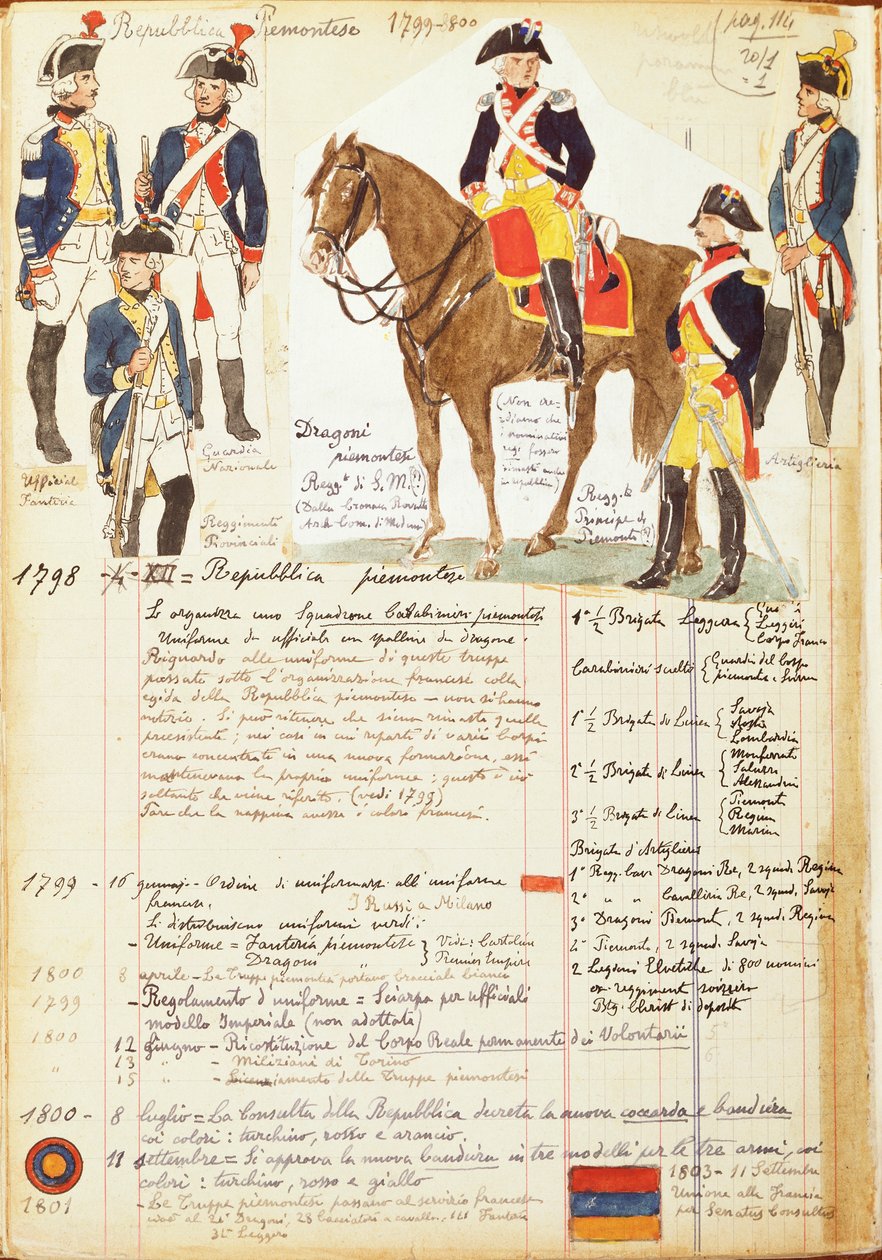 Repubblica Piemontese 1799-1800
pag. 114
20/1
= 1
Ufficial
Fanteria
Guardia
Nazionale
Reggimenti
Provinciali
Dragoni
piemontesi
Regg.to di S. M. (?)
(Dalla Cronaca Rovatti
Arch. Com. di Modena)
(Non cre-
diamo che
i nominativi
regi fossero
rimasti anche
in repubblica)
Regg.to
Principe di
Piemonte (?)
Artiglieria
1798 - XII = Repubblica piemontese
Si organizza uno Squadrone Carabinieri piemontesi
Uniforme da ufficiale con spalline da dragone.
Riguardo alle uniforme di queste truppe
passate sotto l'organizzazione francese colla
egida della Repubblica piemontese - non si hanno
notizie. Si può ritenere che siano rimaste quelle
preesistenti; nei casi in cui reparti di varii Corpi
erano concentrati in una nuova formazione, essi
mantenevano la propria uniforme; questo è ciò
soltanto che viene riferito. (vedi 1799)
Pare che la nappina avesse i colori francesi.
1ª ½ Brigata Leggera { Leggeri
Corpo Franco
Carabinieri scelti { Guardie del Corpo
piemontesi e
1ª ½ Brigata di Linea { Savoja
Aosta
Lombardia
2ª ½ Brigata di Linea { Monferrato
Saluzzo
Alessandria
3ª ½ Brigata di Linea { Piemonte
Regina
Marina
Brigata d'Artiglieria
1º Regg. Cav. Dragoni Re, 2 squadr. Regina
2º " Cavalleria Re, 2 squad. Savoja
3º Dragoni Piemont, 2 squadr. Regina
4º Piemonte, 2 squad. Savoja
2 Legioni Elvetiche di 800 uomini
ex reggimenti svizzeri
Btg. Christ di deposito
1799 - 16 gennajo - Ordine di uniformarsi all'uniforme
francese. I Russi a Milano
Si distribuiscono uniformi verdi:
- Uniforme = Fanteria piemontese } Vedi: Cartolari
Dragoni " } Primier Empire
1800 8 aprile - Le Truppe piemontesi portano bracciale bianco
1799 - Regolamento d'uniforme = Sciarpa per ufficiali
modello Imperiale (non adottata)
1800 12 giugno - Ricostituzione del Corpo Reale permanente dei Volontarii
" 13 " - Miliziani di Torino
15 " - Licenziamento delle Truppe piemontesi
1800 - 8 luglio = La Consulta della Repubblica decreta la nuova coccarda e bandiera
coi colori: turchino, rosso e arancio.
11 settembre = Si approva la nuova bandiera in tre modelli per le tre armi, coi
colori: turchino, rosso e giallo
1801 - Le Truppe piemontesi passano al servizio francese
al 21º Dragoni, 26 Cacciatori a cavallo, 111 Fanteria
31º Leggero
1803 - 11 Settembre
Unione alla Francia
per Senatus Consultus